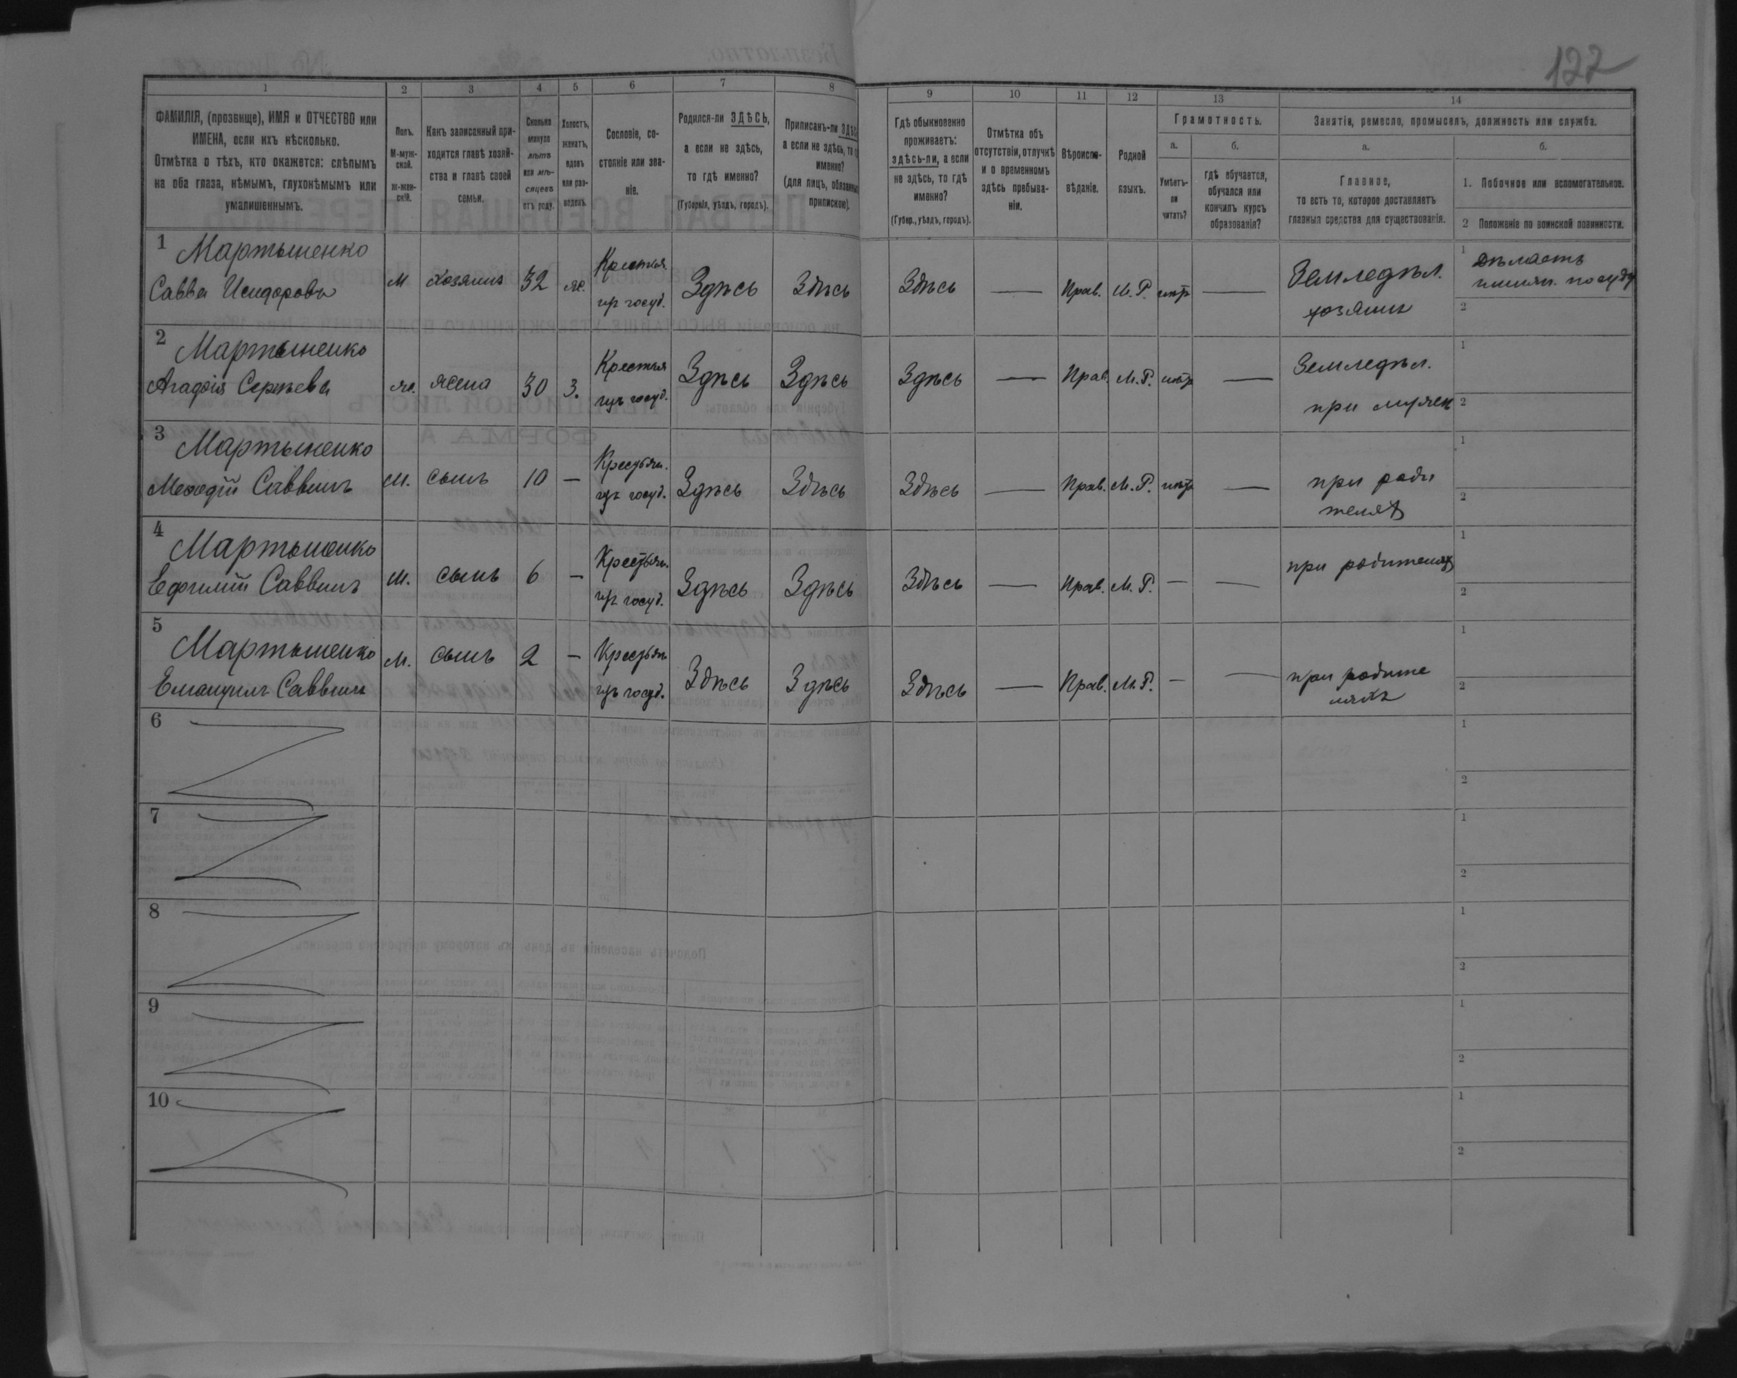 122
1 2 3 4 5 6 7 8 9 10 11 12 13 14
ФАМИЛІЯ, (прозвище), ИМЯ и ОТЧЕСТВО или
ИМЕНА, если ихъ нѣсколько.
Отмѣтка о тѣхъ, кто окажется: слѣпымъ
на оба глаза, нѣмымъ, глухонѣмымъ или
умалишеннымъ.
Полъ.
М-муж-
ской.
ж-жен-
скій.
Какъ записанный при-
ходится главѣ хозяй-
ства и главѣ своей
семьи.
Сколько
минуло
лѣтъ
или мѣ-
сяцевъ
отъ роду.
Холостъ,
женатъ,
вдовъ
или раз-
веденъ.
Сословіе, со-
стояніе или зва-
ніе.
Родился-ли ЗДѢСЬ,
а если не здѣсь,
то гдѣ именно?
(Губернія, уѣздъ, городъ).
Приписанъ-ли ЗДѢ
а если не здѣсь, то г
именно?
(для лицъ, обязанных
припиской).
Гдѣ обыкновенно
проживаетъ:
здѣсь-ли, а если
не здѣсь, то гдѣ
именно?
(Губер., уѣздъ, городъ).
Отмѣтка объ
отсутствіи, отлучкѣ
и о временномъ
здѣсь пребыва-
ніи.
Вѣроиспо-
вѣданіе.
Родной
языкъ.
Грамотность.
а.
Умѣетъ-
ли
читать?
б.
гдѣ обучается,
обучался или
кончилъ курсъ
образованія?
Занятіе, ремесло, промыселъ, должность или служба.
а.
Главное,
то есть то, которое доставляетъ
главныя средства для существованія.
б.
1. Побочное или вспомогательное.
2 Положеніе по воинской повинности.
1 Мартыненко
Савва Исидоровъ
М хозяинъ 32 ж.
Крестья
изъ госуд.
Здѣсь Здѣсь Здѣсь — Прав. М.Р. нѣтъ —
Земледѣл.
хозяинъ
1 Дѣлаетъ
посуду
2
2 Мартыненко
Агафія Сергѣева
ж. жена 30 з.
Крестья
изъ госуд.
Здѣсь Здѣсь Здѣсь — Прав. М.Р. нѣтъ —
Земледѣл.
при мужѣ
1
2
3 Мартыненко
Меѳодій Саввинъ
М. сынъ 10 —
Крестьян.
изъ госуд.
Здѣсь Здѣсь Здѣсь — Прав. М.Р. нѣтъ —
при роди
теляхъ
1
2
4 Мартыненко
Ефимій Саввинъ
М. сынъ 6 —
Крестьян.
изъ госуд.
Здѣсь Здѣсь Здѣсь — Прав. М.Р. — —
при родителяхъ
1
2
5 Мартыненко
Емануилъ Саввин
М. сынъ 2 —
Крестьян
изъ госуд.
Здѣсь Здѣсь Здѣсь — Прав. М.Р. — —
при родите
ляхъ
1
2
6
1
2
7
1
2
8
1
2
9
1
2
10
1
2